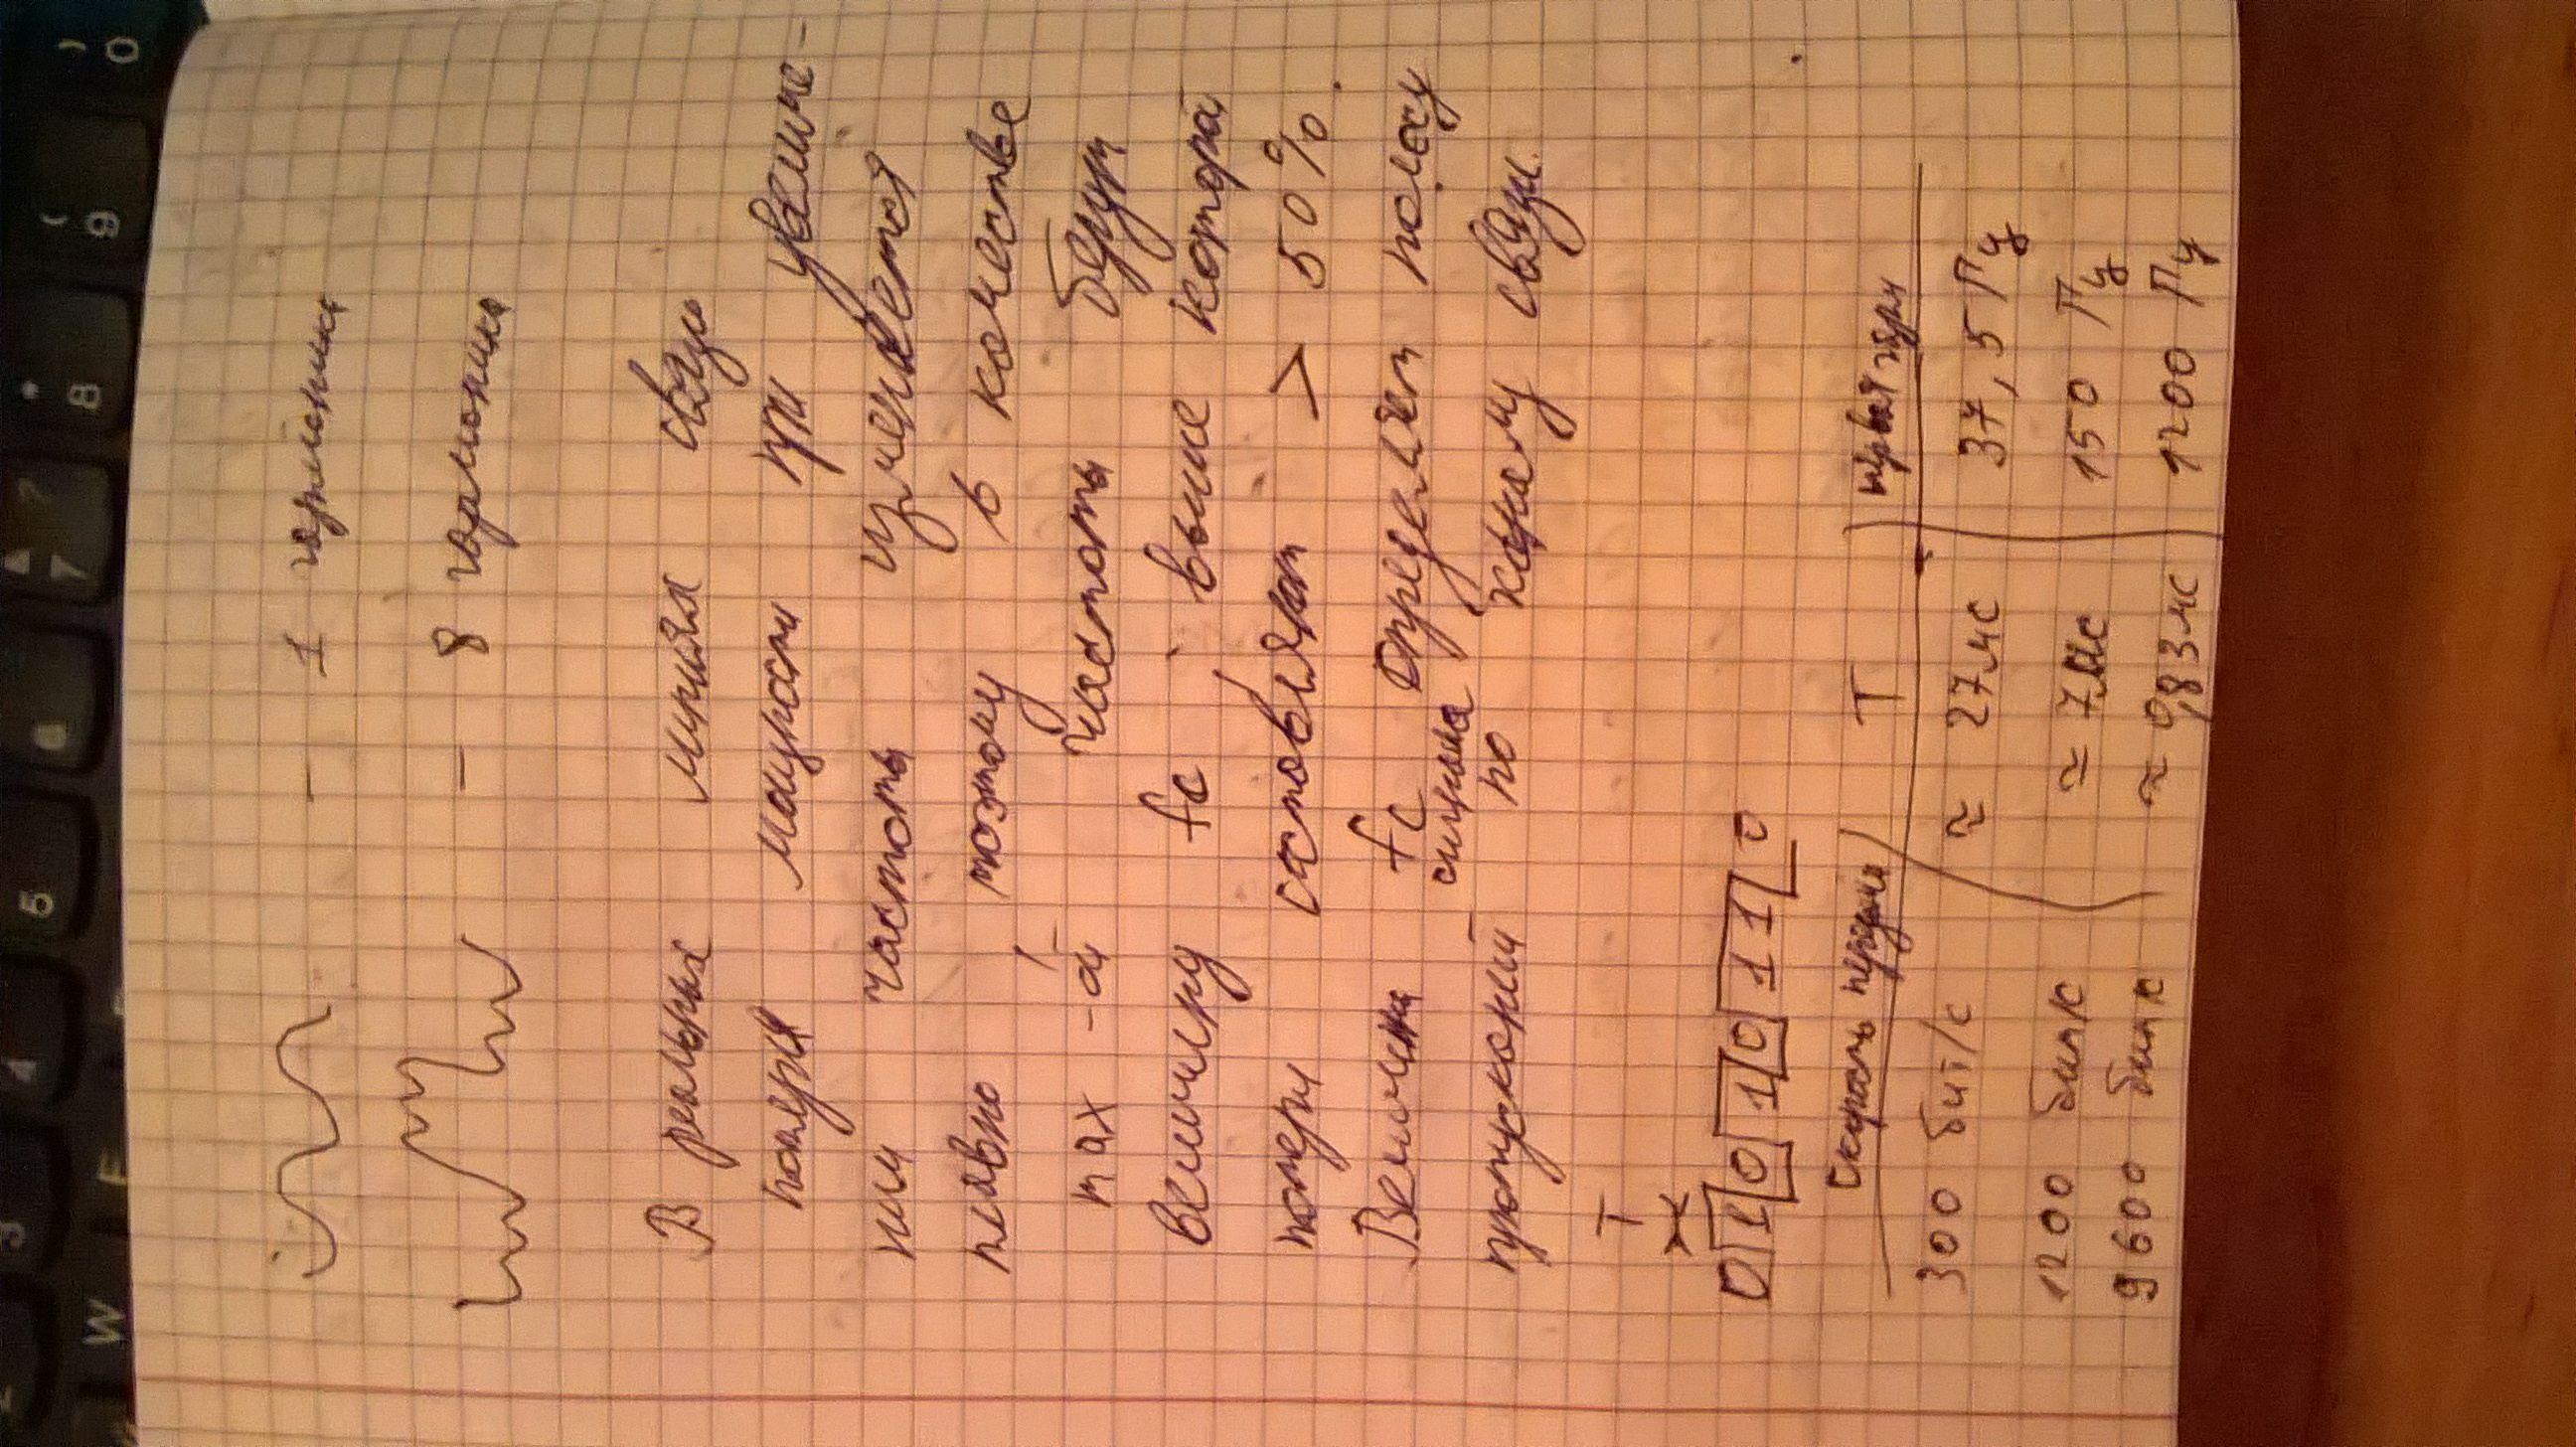 3 4 5 6 7 8 9 0
* ( )
W E
- 1 гармоника
- 8 гармоника
В реальных линиях связи
потеря мощности при увеличе-
нии частоты изменяется
плавно, поэтому в качестве
max -ой частоты берут
величину fc, выше которой
потери составляют > 50%.
Величина fc определяет полосу
сигнала
пропусканий по каналу связи.
T
0 1 0 1 0 1 1 0
скорость передачи T первая гарм
300 бит/с ≈ 27мс 37,5 Гц
1200 бит/с ≃ 7мс 150 Гц
9600 бит/с ≈ 0,83мс 1200 Гц